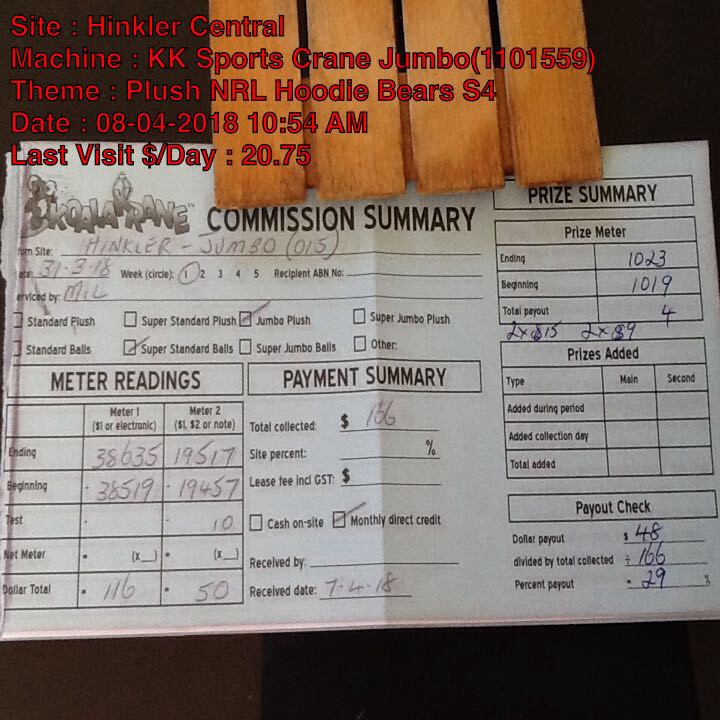 Site : Hinkler Central
Machine : KK Sports Crane Jumbo(1101559)
Theme : Plush NRL Hoodie Bears S4
Date : 08-04-2018 10:54 AM
Last Visit $/Day : 20.75
KOALA KRANE™ COMMISSION SUMMARY
Site: HINKLER - JUMBO (015)
31-3-18 Week (circle): 1 2 3 4 5 Recipient ABN No:
by: MIL
Standard Plush Super Standard Plush Jumbo Plush Super Jumbo Plush
Standard Balls Super Standard Balls Super Jumbo Balls Other:
METER READINGS
Meter 1 Meter 2
($1 or electronic) ($1, $2 or note)
Ending 38635 19517
Beginning - 38519 - 19457
Test - 10
Net Meter = (x__) = (x__)
Dollar Total = 116 = 50
PAYMENT SUMMARY
Total collected: $ 166
Site percent: %
Lease fee incl GST: $
Cash on-site Monthly direct credit
Received by:
Received date: 7-4-18
PRIZE SUMMARY
Prize Meter
Ending 1023
Beginning 1019
Total payout 4
2x$15 2x$9
Prizes Added
Type Main Second
Added during period
Added collection day
Total added
Payout Check
Dollar payout $ 48
divided by total collected ÷ 166
Percent payout = 29 %